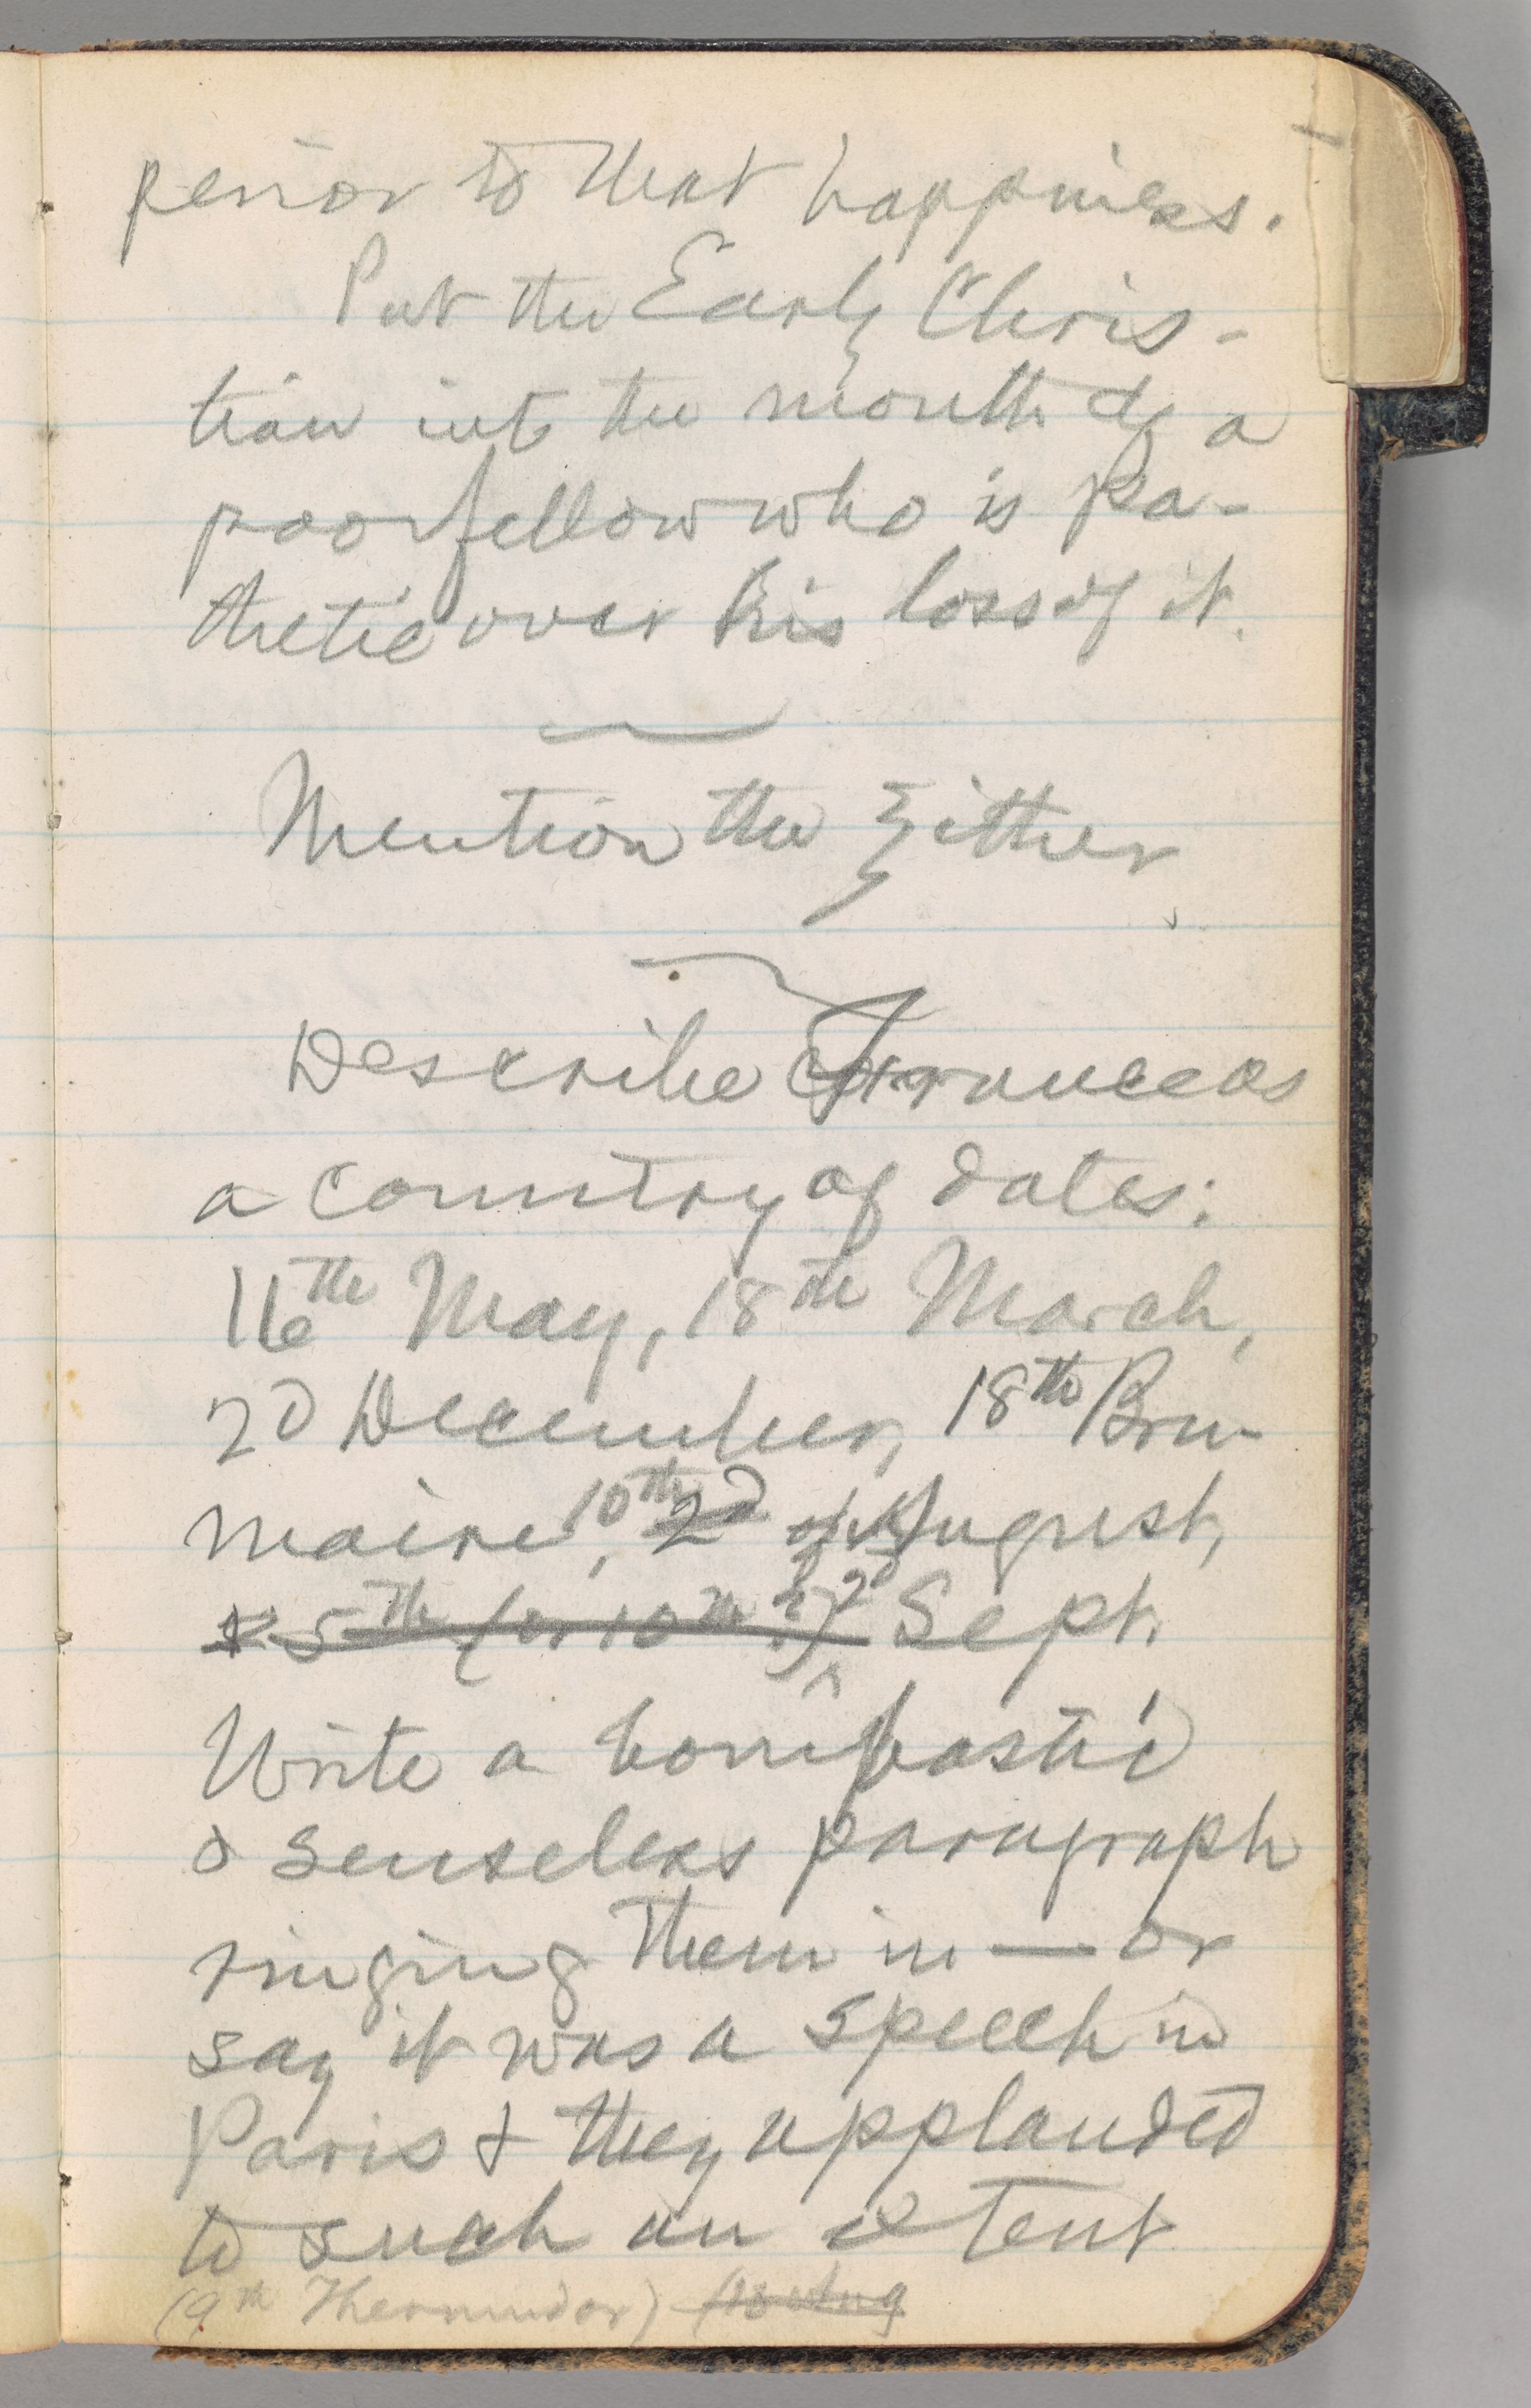 perior to that happiness.
Put the Early Chris-
tian into the mouth of a
poor fellow who is pa-
thetic over his loss of it.
Mention the Zither
Describe France as
a country of dates:
16th May, 18th March,
2d December, 18th Bru-
maire, 10th 2d of August,
& 5th (or 10th ?) 2d Sept.
Write a bombastic
& senseless paragraph
ringing them in — or
say it was a speech in
Paris & they applauded
to such an extent
(9th Thermidor) (18 Aug